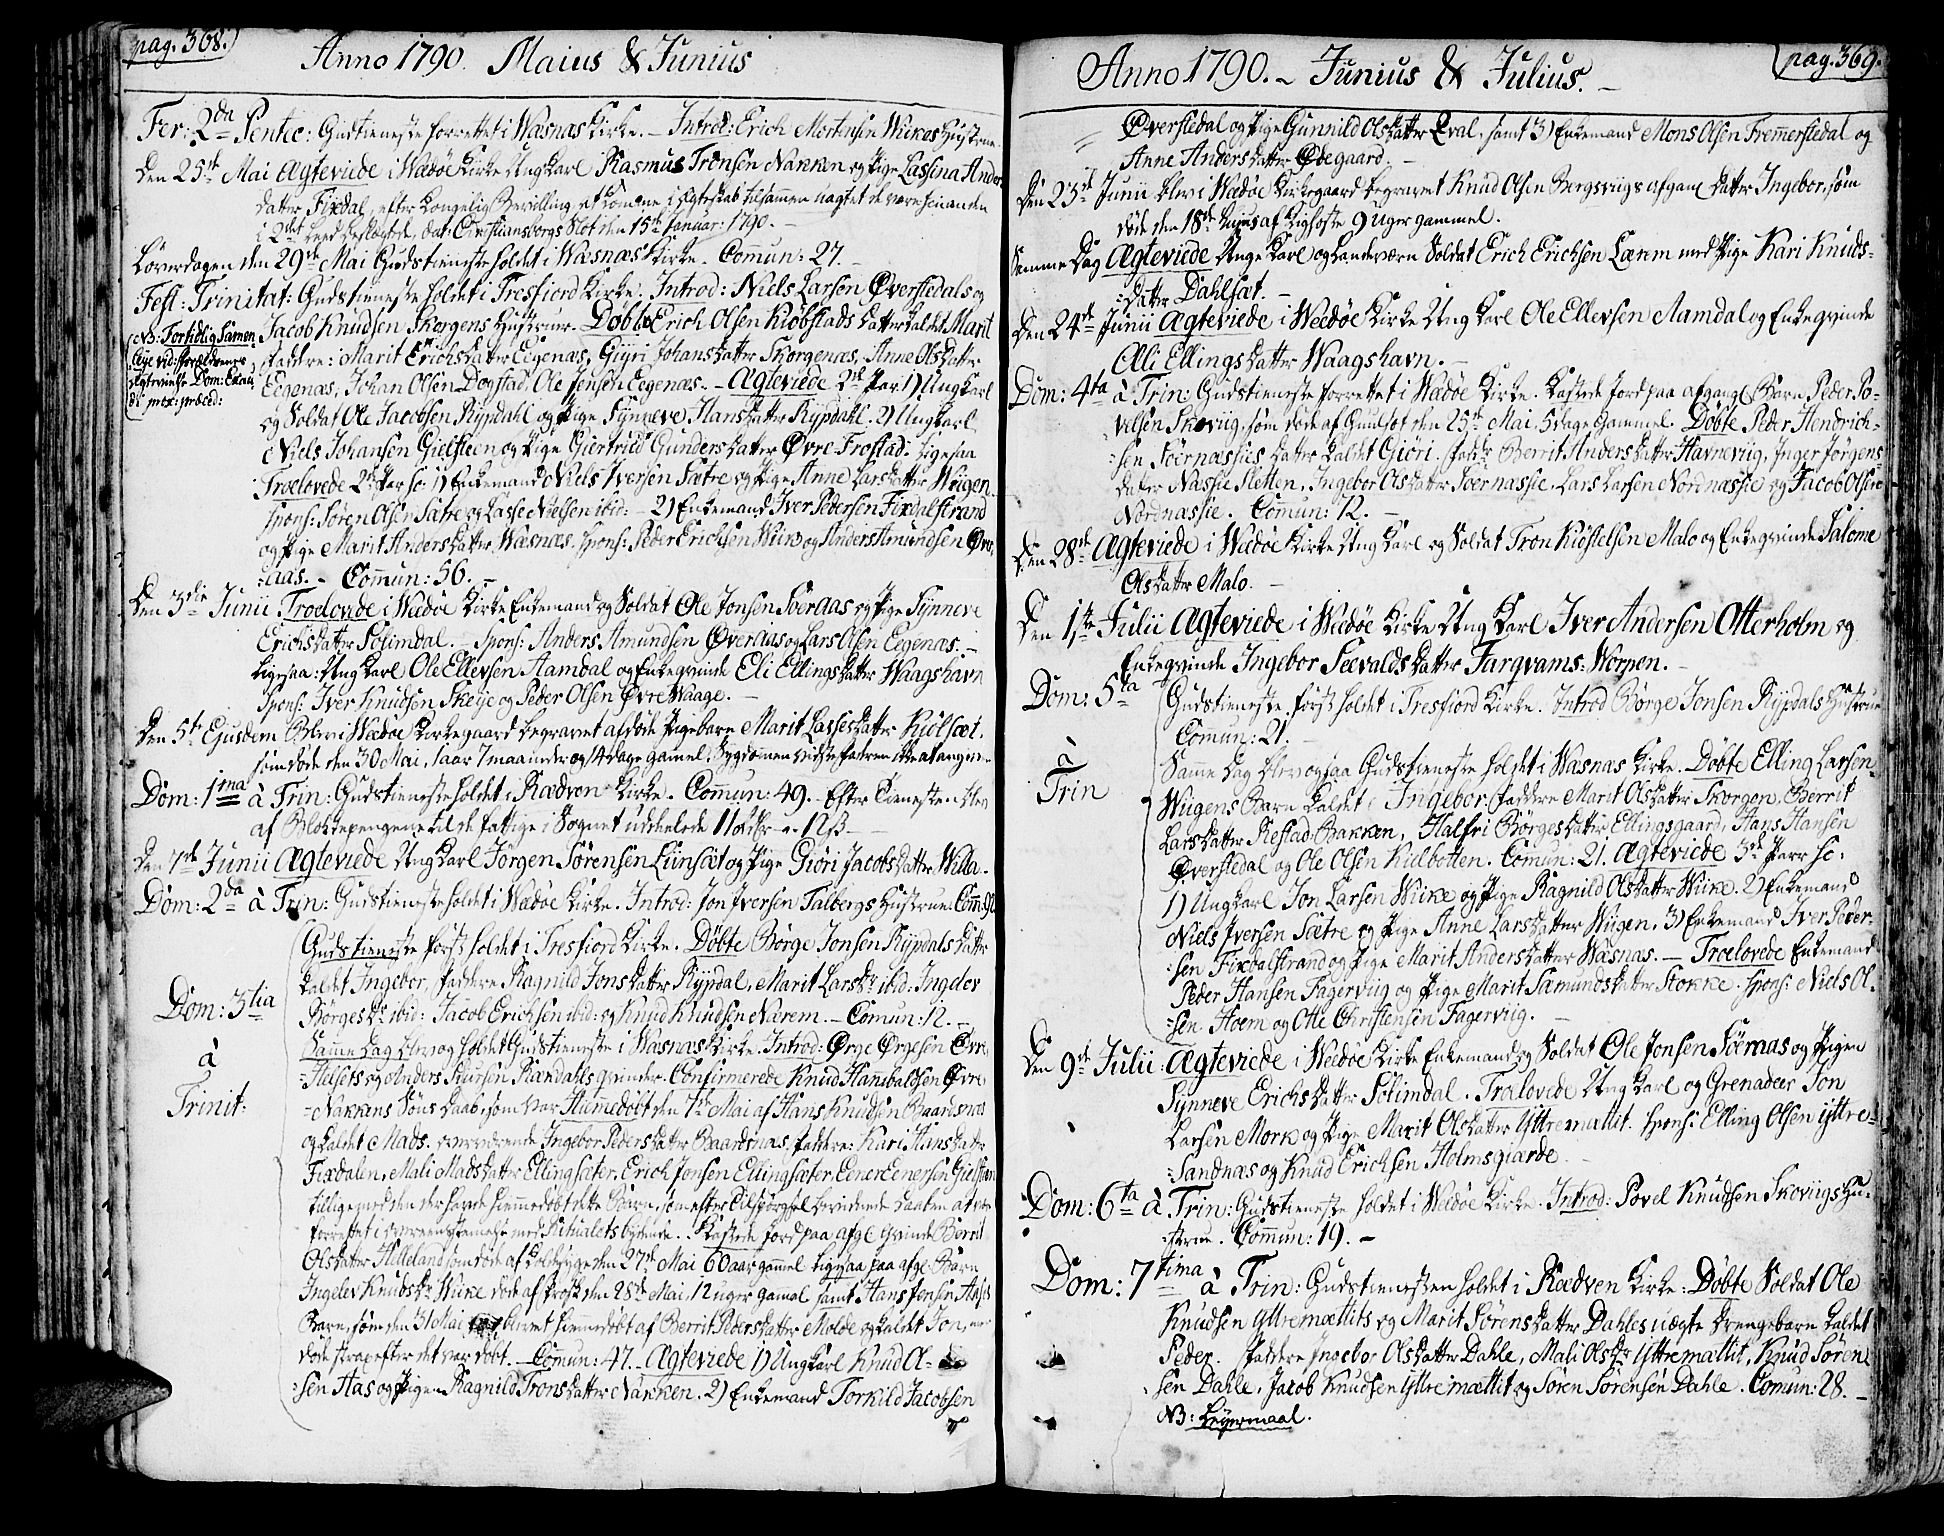 pag. 368.
Anno 1790. Maius & Junius
Fer: 2da Pentec: Gudstieneste forrettet i Wæsnæs Kirke. – Introd: Erich Mortensen Wickes Hustrue.
Den 25de Mai Ægteviede i Wædøe Kirke Ung Karl Rasmus Tronsen Nakken og Pige Lassina Anders
datter Fixdal, efter Kongelig Bevilling at komme i Ægteskab tilsammen uagtet de vare hinanden
i 2det Leed beslægtede, dat: Christiansborgs Slot den 15de Januar: 1790. –
Løverdagen den 29de Mai Gudstieneste holdet i Wæsnæs Kirke. Commun: 27. –
Fest: Trinitat: Gudstieneste holdet i Tresfiord Kirke. Introd: Niels Larsen Øverstedals og
Jacob Knudsen Skorgens Hustruer. Døbte Erich Olsen Kiøbstads datter kaldet Marit
NB: Fortidlig Sammen
leje ved forældrenes
Ægtevielse Dom: Exau
di prox: præced:
Faddere: Marit Erichsdatter Eegenæs, Giyri Johansdatter Skorgenæs, Anne Olsdatter
Eegenæs, Johan Olsen Dogstad, Ole Jensen Eegenæs. – Ægteviede 2de Par 1) Ung Karl
og Soldat Ole Jacobsen Rypdahl og Pige Synneve Hansdatter Rypdahl. 2) Ung Karl
Niels Johansen Gielsteen og Pige Giertrud Gundersdatter Øvre Frostad. Ligesaa
Troelovede 2de Par sc: 1) Enkemand Niels Iversen Sætre og Pige Anne Larsdatter Wiigen
spons: Søren Olsen Sætre og Lasse Nielsen ibid: – 2) Enkemand Iver Pedersen Fixdalstrand
og Pige Marit Andersdatter Wæsnæs. spons: Peder Erichsen Wiik og Anders Amundsen Øver
=aas. – Commun: 56. –
Den 3die Junii Troelovede i Wædøe Kirke Enkemand og Soldat Ole Jonsen Soeraas og Pige Synneve
Erichsdatter Solimdal. – spons: Anders Amundsen Øveraas og Lars Olsen Eegenæs. –
Ligesaa: Ung Karl Ole Ellevsen Aamdal og Enkeqvinde Eli Ellingsdatter Waagshavn
spons: Iver Knudsen Skeije og Peder Olsen Øvre Waage. –
Den 5te Ejusdem Blev i Wædøe Kirkegaard begravet afdøde Pigebarn Marit Lassesdatter Kiølsæt,
som døde den 30 Mai, 1 aar 7 maaneder og 14 dage gamel. Sygdommen vidste faderen ikke at angive.
Dom: 1ma à Trin: Gudstieneste holdet i Rædven Kirke. Commun: 49. Efter Tienesten blev
af Blokkepengene til de fattige i Sognet uddeelede 11 ort
Den 7de Junii Ægteviede Ung Karl Jørgen Sørensen Liinsæt og Pige Giøri Jacobsdatter Willa.
Dom: 2da à Trin: Gudstieneste holdet i Wædøe Kirke. Introd: Jon Iversen Talbergs Hustrue.
Dom: 3tia
à
Trinit:
Gudstieneste først holdet i Tresfiord Kirke. Døbte Børge Jonsen Rypdals datter
kaldet Ingebor, Faddere Ragnild Jonsdatter Rypdal, Marit Larsdr ibid: Ingebor
Børgesdr ibid: Jacob Erichsen ibid: og Knud Knudsen Nærem. – Comun: 12. –
Samme Dag blev og holdet Gudstieneste i Wæsnæs Kirke. Introd: Ørge Ørgesen Øvre
=Helsets og Anders Siursen Rækdals qvinder. Confirmerede Knud Hansbaldsen Øvre
=Nakkens Søns daab, som var Hiemmedøbt den 7de Mai af Hans Knudsen Baardsnæs
og kaldet Mads. nærværende Ingebor Pedersdatter Baardsnæs. Faddere: Kari Hansdatter
Fixdalen, Mali Madsdatter Ellingsæter, Erich Jonsen Ellingsæter, Eener Eenersen Gielsteen
tilligemed den der havde hiemmedøbt dette Barn, som efter Tilspørgsel bevidnede Daaben at være
forrettet i overeensstemmelse med Ritualets bydende. Kastede Jord paa afgl. qvinde Berrit
Olsdatter Helleland som døde af Koldesyge den 27de Mai 60 aar gammel. Ligesaa paa afgl: Barn
Ingelev Knudsdr Wiike døde af Frost den 28de Mai, 12 uger gamal samt Hans Jensen Aases
Barn, som den 31 Mai blevet hiemmedøbt af Berrit Pedersdatter Molde og kaldet Jon,
døde strax efter det var døbt. – Commun: 47. – Ægteviede 1) Ung Karl Knud Ol=
=sen Aas og Pigen Ragnild Tronsdatter Nakken. 2) Enkemand Torkild Jacobsen

Anno 1790. – Junius & Julius. –
pag. 369.
Øverstedal og Pige Gunnild Olsdatter Eval. samt 3) Enkemand Mons Olsen Fremerstedal og
Anne Andersdatter Ødegaard. –
Den 23de Junii blev i Wædøe Kirkegaard begravet Knud Olsen Bergsviigs afgane datter Ingebor, som
døde den 18de hujus af Kighoste 9 Uger gammel.
Samme Dag Ægteviede Unge Karl og Landeværn Soldat Erich Erichsen Lærem med Pige Kari Knuds=
=datter Dahlsæt. –
Den 24de Junii Ægteviede i Wædøe Kirke Ung Karl Ole Ellevsen Aamdal og Enkeqvinde
Elli Ellingsdatter Waagshavn. –
Dom: 4ta à Trin: Gudstieneste forrettet i Wædøe Kirke. Kastede Jord paa afgangl. Barn Peder Po=
=velsen Skoviig, som døde af Guulsot den 25de Mai, 5 dage gammel. Døbte Peder Hendrich=
=sen Søernæssies datter kaldet Giøri. Faddr Berrit Andersdatter Havneviig, Inger Jørgens
datter Næssie Sletten, Ingebor Olsdatter Søernæssie, Lars Larsen Nordnæssie og Jacob Olsen
Nordnæssie. Commun: 12. –
Den 28de Ægteviede i Wædøe Kirke Ung Karl og Soldat Tron Kiøstelsen Malo og Enkeqvinde Salome
Olsdatter Malo. –
Den 1ste Julii Ægteviede i Wædøe Kirke Ung Karl Iver Andersen Otterholm og
Enkeqvinde Ingebor Seevaldsdatter Fargvams: Worpen. –
Dom: 5ta
à
Trin
Gudstieneste først holdet i Tresfiord Kirke. Introd Børge Jonsen Rypdals Hustrue
Comun: 21. –
Samme Dag blev ogsaa Gudstieneste holdet i Wæsnæs Kirke. Døbte Elling Larsen
Wiigens Barn kaldet Ingebor, Faddere Marit Olsdatter Skorgen, Berrit
Larsdatter Restad Bakken, Halfri Børgesdatter Ellingsgaard, Hans Hansen
Øverstedal og Ole Olsen Kielbotten. Comun: 21. Ægteviede 3de Parr sc:
1) Ung Karl Jon Larsen Wiike og Pige Ragnild Olsdatter Wiike. 2) Enkemand
Niels Iversen Sætre og Pige Anne Larsdatter Wiigen. 3) Enkemand Iver Peder=
=sen Fixdalstrand og Pige Marit Andersdatter Wæsnæs. – Troelovede Enkemand
Peder Hansen Fagerviig og Pige Marit Sæmundsdatter Stokke. spons: Niels Ol=
=sen Hoem og Otte Christensen Fagerviig. –
Den 9de Julii: Ægteviede i Wædøe Kirke Enkemand og Soldat Ole Jonsen Sørnæs og Pigen
Synneve Erichsdatter Solimdal. Troelovede Ung Karl og Grenadeer Jon
Larsen Mork og Pige Marit Olsdatter Yttremættit. spons: Elling Olsen yttre=
=Sandnæs og Knud Erichsen Holmsgiærde. –
Dom: 6ta à Trin: Gudstieneste holdet i Wædøe Kirke. Introd: Povel Knudsen Skoviigs Hu=
=strue. Commun: 19. –
Dom: 7tima à Trin: Gudstienesten holdet i Rædven Kirke: Døbte Soldat Ole
Knudsen Yttremættits og Marit Sørensdatter Dahles uægte Drengebarn kaldet
Peder. Faddere Ingebor Olsdatter Dahle, Mali Olsdr Yttremættit, Knud Søren
sen Dahle, Jacob Knudsen Yttremættit og Søren Sørensen Dahle. Comun: 28. –
NB: Leyermaal.